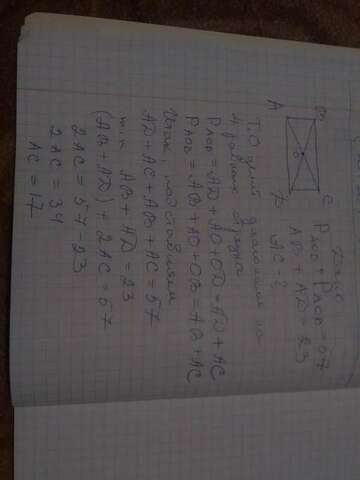 Дано
P AOD + P AOB = 57
AB + AD = 23
AC - ?
A B C D O
Т.О делит диагонали на
4 равных отрезка
P AOD = AD + AO + OD = AD + AC
P AOB = AB + AO + OB = AB + AC
подставляем
AD + AC + AB + AC = 57
т.к AB + AD = 23
(AB + AD) + 2AC = 57
2AC = 57 - 23
2AC = 34
AC = 17